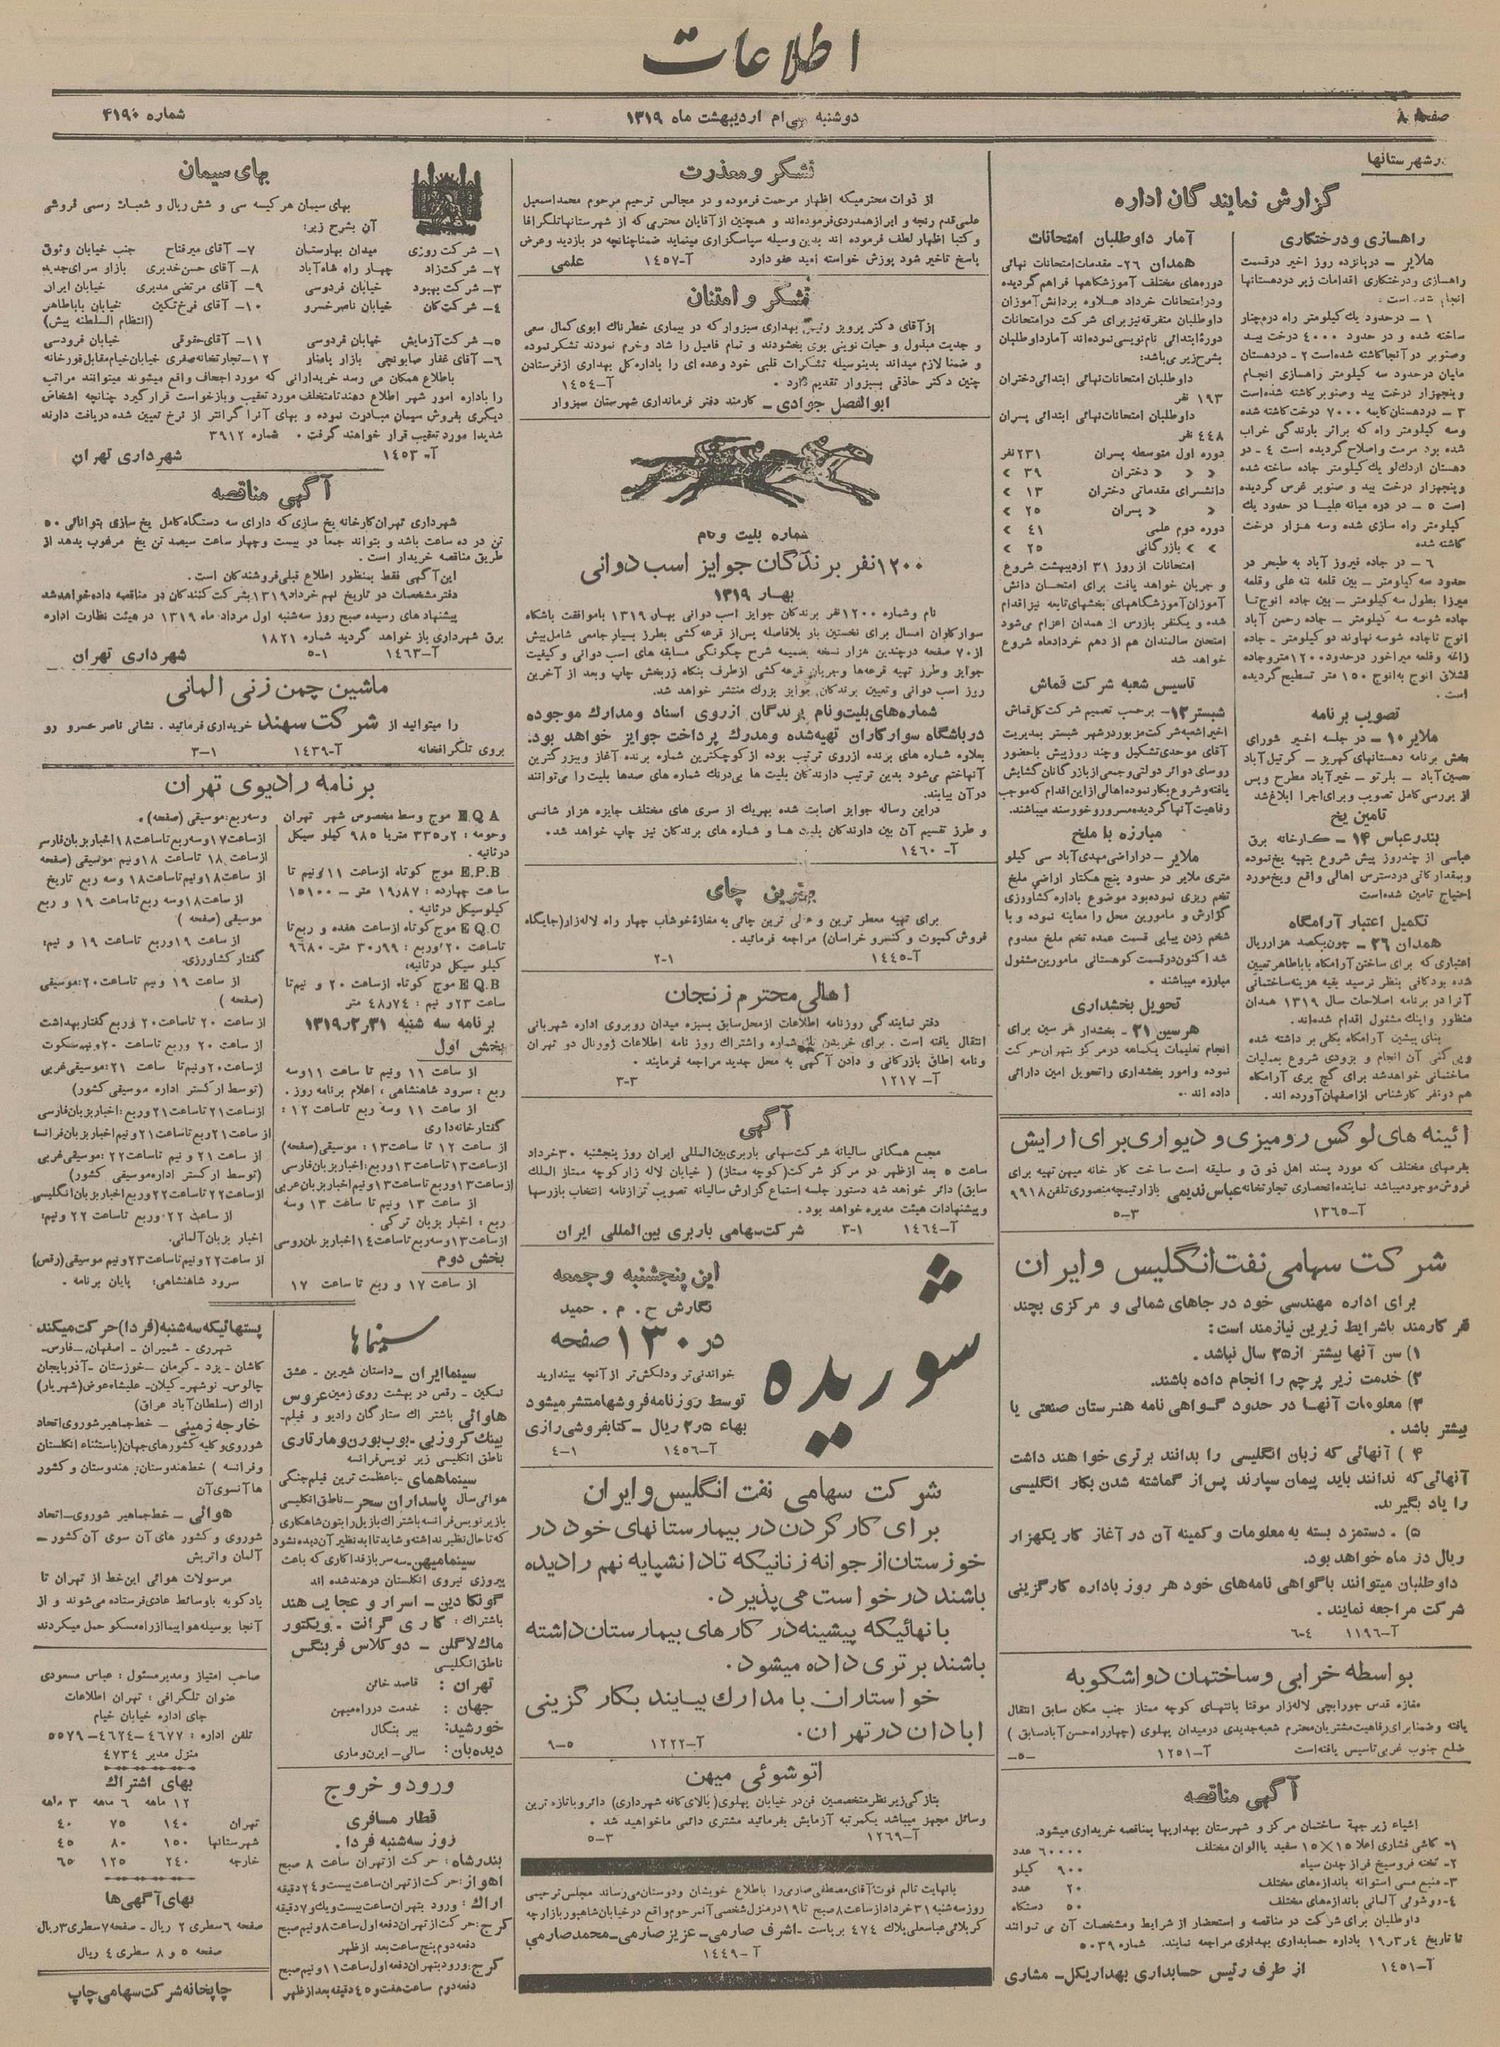 اطلاعات
صفحه ۸
دوشنبه سی‌ام اردیبهشت ماه ۱۳۱۹
شماره ۴۱۹۰
در شهرستانها
گزارش نمایندگان اداره
راهسازی و درختکاری
ملایر – در پانزده روز اخیر در قسمت
راهسازی و درختکاری اقدامات زیر در دهستانها
انجام شده است:
۱ – در حدود یك کیلومتر راه در مچنار
ساخته شده و در حدود ۴۰۰۰ درخت بید
و صنوبر در آنجا کاشته شده است ۲ – دردهستان
مایان در حدود سه کیلومتر راهسازی انجام
و پنجهزار درخت بید و صنوبر کاشته شده است
وسه کیلومتر راه که براثر بارندگی خراب
شده بود مرمت و اصلاح گردیده است ۴ – دو
دهستان اردك‌لو یك کیلومتر جاده ساخته شده
و پنجهزار درخت بید و صنوبر غرس گردیده
است ۵ – در دره میانه علیا در حدود یك
کیلومتر راه سازی شده وسه هزار درخت
کاشته شده
تصویب برنامه
ملایر ۱۰ – در جلسه اخیر شورای
بخش برنامه دهستانهای کهریز – کرتیل‌آباد
از بررسی کامل تصویب و برای اجرا ابلاغ شد
تامین یخ
بندرعباس ۱۴ – کارخانه برق
عباسی از چند روز پیش شروع بتهیه یخ نموده
و بمقدار کافی در دسترس اهالی واقع و یخ مورد
احتیاج تامین شده است
تکمیل اعتبار آرامگاه
همدان ۲۶ – چون یکصد هزار ریال
اعتباری که برای ساختن آرامگاه باباطاهر تعیین
شده بود کافی بنظر نرسید بقیه هزینه ساختمانی
آنرا در برنامه اصلاحات سال ۱۳۱۹ همدان
منظور و اینك مشغول اقدام شده‌اند.
بنای پیشین آرامگاه بکلی بر داشته شده
ساختمانی خواهد شد برای گچ بری آرامگاه
هم دو نفر کارشناس از اصفهان آورده اند.
آمار داوطلبان امتحانات
همدان ۲۶ – مقدمات امتحانات نهائی
دوره‌های مختلف آموزشگاهها فراهم گردیده
و در امتحانات خرداد علاوه بر دانش‌آموزان
داوطلبان متفرقه نیز برای شرکت در امتحانات
دورهٔ ابتدائی نام‌نویسی نموده‌اند آمار داوطلبان
بشرح زیر می‌باشد:
داوطلبان امتحانات نهائی ابتدائی دختران
۱۹۳ نفر
داوطلبان امتحانات نهائی ابتدائی پسران
۴۴۸ نفر
دوره اول متوسطه پسران ۲۳۱ نفر
» » » دختران ۳۹ »
دانشسرای مقدماتی دختران ۱۳ »
» » پسران ۲۵ »
دوره دوم علمی ۴۱ »
» » بازرگانی ۲۵ »
امتحانات از روز ۳۱ اردیبهشت شروع
و جریان خواهد یافت برای امتحان دانش
آموزان آموزشگاههای بخشهای تابعه نیز اقدام
شده و یکنفر بازرس از همدان اعزام می‌شود
امتحان سالمندان هم از دهم خرداد ماه شروع
خواهد شد
تاسیس شعبه شرکت قماش
شبستر ۱۲ – برحسب تصمیم شرکت کل قماش
اخیرا شعبه شرکت مزبور در شهر شبستر بمدیریت
آقای موحدی تشکیل و چند روز پیش با حضور
روسای دوائر دولتی و جمعی از بازرگانان گشایش
یافته و شروع بکار نموده اهالی از این اقدام که موجب
رفاهیت آنها گردیده مسرور و خورسند میباشند.
مبارزه با ملخ
ملایر – در اراضی مهدی‌آباد سی کیلو
متری ملایر در حدود پنج هکتار اراضی ملخ
تخم ریزی نموده بود موضوع باداره کشاورزی
گزارش و مامورین محل را معاینه نموده و با
شخم زدن پیاپی قسمت عمده تخم ملخ معدوم
شد اکنون در قسمت کوهستانی مامورین مشغول
مبارزه میباشند.
تحویل بخشداری
هرسین ۲۱ – بخشدار هرسین برای
انجام تعلیمات یکماهه در مرکز بتهران حرکت
نموده و امور بخشداری را تحویل امین دارائی
داده‌اند.
ائینه های لوکس رومیزی و دیواری برای ارایش
بفرمهای مختلف که مورد پسند اهل ذوق و سلیقه است ساخت کار خانه میهن تهیه برای
فروش موجود میباشد نماینده انحصاری تجارتخانه عباس ندیمی بازار تیمچه منصوری تلفن ۹۹۱۸
آ–۱۳۶۵ ۳–۵
شرکت سهامی نفت انگلیس و ایران
برای اداره مهندسی خود در جاهای شمالی و مرکزی بچند
نفر کارمند با شرایط زیرین نیازمند است:
۱) سن آنها بیشتر از ۲۵ سال نباشد.
۲) خدمت زیر پرچم را انجام داده باشند.
۳) معلومات آنها در حدود گواهی نامه هنرستان صنعتی یا
بیشتر باشد.
۴) آنهائی که زبان انگلیسی را بدانند برتری خواهند داشت
آنهائی که ندانند باید پیمان سپارند پس از گماشته شدن بکار انگلیسی
را یاد بگیرند.
۵) . دستمزد بسته به معلومات و کمینه آن در آغاز کار یکهزار
ریال در ماه خواهد بود.
داوطلبان میتوانند با گواهی نامه‌های خود هر روز باداره کارگزینی
شرکت مراجعه نمایند.
آ–۱۱۹۶ ۴–۶
بواسطه خرابی و ساختمان دو اشکوبه
مغازه قدس جورابچی لاله‌زار موقتا بانتهای کوچه ممتاز جنب مکان سابق انتقال
یافته و ضمنا برای رفاهیت مشتریان محترم شعبه جدیدی در میدان پهلوی (چهارراه حسن‌آباد سابق)
ضلع جنوب غربی تاسیس یافته است آ–۱۲۵۱ –۵
آگهی مناقصه
اشیاء زیر جهة ساختمان مرکز و شهرستان بهداریها بمناقصه خریداری میشود.
۱– کاشی فشاری اعلا ۱۵×۱۵ سفید یا الوان مختلف ۶۰۰۰۰ عدد
۲– تخته فروسیخ فراز چدن سیاه ۹۰۰ کیلو
۳– منبع مسی استوانه باندازه‌های مختلف ۲۰ عدد
۴– روشوئی آلمانی باندازه‌های مختلف ۵۰ دستگاه
داوطلبان برای شرکت در مناقصه و استحضار از شرایط و مشخصات آن می توانند
تا تاریخ ۱۹ر۳ر۴ باداره حسابداری بهداری مراجعه نمایند. شماره ۵۰۳۹
آ–۱۴۵۱ از طرف رئیس حسابداری بهداریکل – مشاری
تشکر و معذرت
از ذوات محترمیکه اظهار مرحمت فرموده و در مجالس ترحیم مرحوم محمد اسمعیل
علمی قدم رنجه و ابراز همدردی فرموده‌اند و همچنین از آقایان محترمی که از شهرستانها تلگرافا
و کتبا اظهار لطف فرموده اند بدین وسیله سپاسگزاری مینماید ضمنا چنانچه در بازدید و عرض
پاسخ تاخیر شود پوزش خواسته امید عفو دارد آ–۱۴۵۷ علمی
تشکر و امتنان
از آقای دکتر پرویز رئیس بهداری سبزوار که در بیماری خطرناك ابوی کمال سعی
و جدیت مبذول و حیات نوینی بوی بخشودند و تمام فامیل را شاد و خرم نمودند تشکر نموده
و ضمنا لازم میداند بدینوسیله تشکرات قلبی خود وعده ای را باداره کل بهداری از فرستادن
چنین دکتر حاذقی بسبزوار تقدیم دارد. آ–۱۴۵۴
ابوالفضل جوادی – کارمند دفتر فرمانداری شهرستان سبزوار
شماره بلیت و نام
۱۲۰۰ نفر برندگان جوایز اسب دوانی
بهار ۱۳۱۹
نام و شماره ۱۲۰۰ نفر برندگان جوایز اسب دوانی بهار ۱۳۱۹ با موافقت باشگاه
سوارکاران امسال برای نخستین بار بلافاصله پس از قرعه کشی بطرز بسیار جامعی شامل بیش
از ۷۰ صفحه در چندین هزار نسخه بضمیمه شرح چگونگی مسابقه های اسب دوانی و کیفیت
جوایز و طرز تهیه قرعه‌ها و جریان قرعه کشی از طرف بنگاه زربخش چاپ و بعد از آخرین
روز اسب دوانی و تعیین برندگان جوایز بزرك منتشر خواهد شد.
شماره‌های بلیت و نام برندگان از روی اسناد و مدارك موجوده
در باشگاه سوارکاران تهیه شده و مدرك پرداخت جوایز خواهد بود.
بعلاوه شماره های برنده از روی ترتیب بوده از کوچکترین شماره برنده آغاز و ببزرگترین
آنها ختم می‌شود بدین ترتیب دارندگان بلیت ها بی‌درنك شماره های صدها بلیت را می‌توانند
در آن بیابند.
در این رساله جوایز اصابت شده بهریك از سری های مختلف جایزه هزار شانسی
و طرز تقسیم آن بین دارندگان بلیت ها و شماره های برندگان نیز چاپ خواهد شد.
آ–۱۴۶۰
بهترین چای
برای تهیه معطر ترین و عالی ترین چائی به مغازهٔ خوشاب چهار راه لاله‌زار (جایگاه
فروش کمپوت و کنسرو خراسان) مراجعه فرمائید.
آ–۱۴۴۵ ۱–۲
اهالی محترم زنجان
دفتر نمایندگی روزنامه اطلاعات از محل سابق بسبزه میدان روبروی اداره شهربانی
انتقال یافته است. برای خریدن تك شماره و اشتراك روز نامه اطلاعات ژورنال دو تهران
و نامه اطاق بازرگانی و دادن آگهی به محل جدید مراجعه فرمایند.
آ–۱۲۱۷ ۳–۳
آگهی
مجمع همگانی سالیانه شرکت سهامی باربری بین‌المللی ایران روز پنجشنبه ۳۰ خرداد
ساعت ۵ بعد از ظهر در مرکز شرکت (کوچه ممتاز) (خیابان لاله زار کوچه ممتاز الملك
سابق) دائر خواهد شد دستور جلسه استماع گزارش سالیانه تصویب ترازنامه انتخاب بازرسها
و پیشنهادات هیئت مدیره خواهد بود.
آ–۱۴۶۴ ۱–۳ شرکت سهامی باربری بین‌المللی ایران
شوریده
این پنجشنبه و جمعه
نگارش ح . م . حمید
در ۱۳۰ صفحه
خواندنی‌تر و دلکش‌تر از آنچه بپندارید
توسط روزنامه فروشها منتشر میشود
بهاء ۲٫۵ ریال – کتابفروشی رازی
آ–۱۴۵۶ ۱–۴
شرکت سهامی نفت انگلیس و ایران
برای کار کردن در بیمارستانهای خود در
خوزستان از جوانه زنانیکه تا دانشپایه نهم را دیده
باشند در خواست می‌پذیرد.
بانهائیکه پیشینه در کارهای بیمارستان داشته
باشند برتری داده میشود.
خواستاران با مدارك بیایند بکار گزینی
ابادان در تهران.
آ–۱۲۲۲ ۵–۹
اتوشوئی میهن
بتازگی زیر نظر متخصصین فن در خیابان پهلوی (بالای کافه شهرداری) دائر و با تازه ترین
وسائل مجهز میباشد یکمرتبه آزمایش بفرمائید مشتری دائمی ما خواهید شد.
آ–۱۲۶۹ ۳–۵
بانهایت تالم فوت آقای مصطفی صارمی را باطلاع خویشان و دوستان می‌رساند مجلس ترحیمی
روز سه‌شنبه ۳۱ خرداد از ساعت ۸ صبح تا ۱۹ در منزل شخصی آنمرحوم واقع در خیابان شاهپور بازارچه
کربلائی عباسعلی پلاك ۴۷۴ برپاست – اشرف صارمی – عزیز صارمی – محمد صارمی
آ–۱۴۴۹
بهای سیمان
بهای سیمان هر کیسه سی و شش ریال و شعبات رسمی فروش
آن بشرح زیر:
۱– شرکت روزی میدان بهارستان
۲– شرکت زاد چهار راه شاه‌آباد
۳– شرکت بهبود خیابان فردوسی
۴– شرکت کان خیابان ناصرخسرو
۵– شرکت آزمایش خیابان فردوسی
۶– آقای غفار صابونچی بازار پامنار
۷– آقای میرفتاح جنب خیابان وثوق
۸– آقای حسن خدیری بازار سرای جدید
۹– آقای مرتضی مدیری خیابان ایران
۱۰– آقای فرخ‌تکین خیابان باباطاهر
(انتظام السلطنه پیش)
۱۱– آقای حقوقی خیابان فردوسی
۱۲– تجارتخانه صفری خیابان خیام مقابل قورخانه
باطلاع همکان می رسد خریدارانی که مورد اجحاف واقع میشوند میتوانند مراتب
را باداره امور شهر اطلاع دهند تا متخلف مورد تعقیب و بازخواست قرار گیرد چنانچه اشخاص
دیگری بفروش سیمان مبادرت نموده و بهای آنرا گرانتر از نرخ تعیین شده دریافت دارند
شدیدا مورد تعقیب قرار خواهند گرفت. شماره ۳۹۱۲
آ–۱۴۵۳ شهرداری تهران
آگهی مناقصه
شهرداری تهران کارخانه یخ سازی که دارای سه دستگاه کامل یخ سازی بتوانائی ۵۰
تن در ده ساعت باشد و بتواند جمعا در بیست و چهار ساعت سیصد تن یخ مرغوب بدهد از
طریق مناقصه خریدار است.
این آگهی فقط بمنظور اطلاع قبلی فروشندگان است.
دفتر مشخصات در تاریخ نهم خرداد ۱۳۱۹ بشرکت کنندگان در مناقصه داده خواهد شد
پیشنهاد های رسیده صبح روز سه‌شنبه اول مرداد ماه ۱۳۱۹ در هیئت نظارت اداره
برق شهرداری باز خواهد گردید شماره ۱۸۲۱
آ–۱۴۶۳ ۱–۵ شهرداری تهران
ماشین چمن زنی المانی
را میتوانید از شرکت سهند خریداری فرمائید. نشانی ناصر خسرو رو
بروی تلگرافخانه آ–۱۴۳۹ ۱–۳
برنامه رادیوی تهران
EQA موج وسط مخصوص شهر تهران
وحومه: ۳۳۵٫۲ متر یا ۹۸۵ کیلو سیکل
در ثانیه.
E.P.B موج کوتاه از ساعت ۱۱ و نیم تا
ساعت چهارده: ۱۹٫۸۷ متر – ۱۵۱۰۰
کیلوسیکل در ثانیه.
EQC موج کوتاه از ساعت هفده و ربع تا
ساعت ۲۰ و ربع: ۳۰٫۹۹ متر – ۹۶۸۰
کیلو سیکل در ثانیه.
EQB موج کوتاه از ساعت ۲۰ و نیم تا
ساعت ۲۳ و نیم: ۴۸٫۷۴ متر
برنامه سه شنبه ۱۳۱۹٫۲٫۳۱
بخش اول
از ساعت ۱۱ و نیم تا ساعت ۱۱ و سه
ربع: سرود شاهنشاهی، اعلام برنامه روز.
از ساعت ۱۱ و سه ربع تا ساعت ۱۲:
گفتار خانه‌داری
از ساعت ۱۲ تا ساعت ۱۳: موسیقی (صفحه)
از ساعت ۱۳ تا ساعت ۱۳ و ربع: اخبار بزبان فارسی
از ساعت ۱۳ و ربع تا ساعت ۱۳ و نیم اخبار بزبان عربی
از ساعت ۱۳ و نیم تا ساعت ۱۳ و سه
ربع: اخبار بزبان ترکی.
از ساعت ۱۳ و سه ربع تا ساعت ۱۴ اخبار بزبان روسی
بخش دوم
از ساعت ۱۷ و ربع تا ساعت ۱۷
وسه ربع: موسیقی (صفحه).
از ساعت ۱۷ و سه ربع تا ساعت ۱۸ اخبار بزبان فارسی
از ساعت ۱۸ تا ساعت ۱۸ و نیم موسیقی (صفحه
از ساعت ۱۸ و نیم تا ساعت ۱۸ و سه ربع تاریخ
از ساعت ۱۸ و سه ربع تا ساعت ۱۹ و ربع
موسیقی (صفحه)
از ساعت ۱۹ و ربع تا ساعت ۱۹ و نیم:
گفتار کشاورزی.
از ساعت ۱۹ و نیم تا ساعت ۲۰: موسیقی
(صفحه)
از ساعت ۲۰ تا ساعت ۲۰ و ربع گفتار بهداشت
از ساعت ۲۰ و ربع تا ساعت ۲۰ و نیم سکوت
از ساعت ۲۰ و نیم تا ساعت ۲۱: موسیقی غربی
(توسط ارکستر اداره موسیقی کشور)
از ساعت ۲۱ تا ساعت ۲۱ و ربع: اخبار بزبان فارسی
از ساعت ۲۱ و ربع تا ساعت ۲۱ و نیم اخبار بزبان فرانسه
از ساعت ۲۱ و نیم تا ساعت ۲۲: موسیقی غربی
(توسط ارکستر اداره موسیقی کشور)
از ساعت ۲۲ تا ساعت ۲۲ و ربع اخبار بزبان انگلیسی
از ساعت ۲۲ و ربع تا ساعت ۲۲ و نیم:
اخبار بزبان آلمانی.
از ساعت ۲۲ و نیم تا ساعت ۲۳ و نیم موسیقی (رقص)
سرود شاهنشاهی: پایان برنامه.
سینماها
سینما ایران – داستان شیرین – عشق
نمکین – رقص در بهشت روی زمین عروس
هاوائی باشتراك ستارگان رادیو و فیلم –
بینك کروزبی – بوب بورن و مارتاری
ناطق انگلیسی زیر نویس فرانسه
سینما همای – باعظمت ترین فیلم جنگی
هوائی سال پاسداران سحر – ناطق انگلیسی
بازیر نویس فرانسه باشتراك بازیل راتبون شاهکاری
که تاحال نظیر نداشته و شاید تا ابد نظیر آن دیده نشود
سینما میهن – سه سرباز فداکاری که باعث
پیروزی نیروی انگلستان در هند شده اند
گونگا دین – اسرار و عجایب هند
باشتراك: کاری گرانت – ویکتور
ماك لاگلن – دوکلاس فربنگس
ناطق انگلیسی
تهران: قاصد خائن
جهان: خدمت در راه میهن
خورشید: ببر بنگال
دیده‌بان: سالی – ایرن و ماری
ورود و خروج
قطار مسافری
روز سه‌شنبه فردا.
بندرشاه: حرکت از تهران ساعت ۸ صبح
اهواز: حرکت از تهران ساعت بیست و ۲۴ دقیقه
اراك: ورود بتهران ساعت بیست و یك و ۷ دقیقه
کرج: حرکت از تهران دفعه اول ساعت ۸ و نیم صبح
دفعه دوم پنج ساعت بعد از ظهر
کرج: ورود بتهران دفعه اول ساعت ۱۱ و نیم صبح
دفعه دوم ساعت هفت و ۴۵ دقیقه بعد از ظهر
پستهائیکه سه شنبه (فردا) حرکت میکند
شهرری – شمیران – اصفهان – فارس –
کاشان – یزد – کرمان – خوزستان – آذربایجان
چالوس – نوشهر – گیلان – علیشاه عوض (شهریار)
اراك (سلطان‌آباد عراق)
خارجه زمینی – خط جماهیر شوروی اتحاد
شوروی و کلیه کشورهای جهان (باستثناء انگلستان
و فرانسه) خط هندوستان: هندوستان و کشور
ها آنسوی آن
هوائی – خط جماهیر شوروی – اتحاد
شوروی و کشور های آن سوی آن کشور –
آلمان و اتریش
مرسولات هوائی این خط از تهران تا
بادکوبه با وسائط عادی فرستاده می‌شوند و از
آنجا بوسیله هواپیما از راه مسکو حمل میکردند
صاحب امتیاز و مدیر مسئول: عباس مسعودی
عنوان تلگرافی: تهران اطلاعات
جای اداره خیابان خیام
تلفن اداره: ۴۶۷۷–۴۶۲۴–۵۵۷۹
منزل مدیر ۴۷۳۴
بهای اشتراك
۱۲ ماهه ۶ ماهه ۳ ماهه
تهران ۱۴۰ ۷۵ ۴۰
شهرستانها ۱۵۰ ۸۰ ۴۵
خارجه ۲۴۰ ۱۲۵ ۶۵
بهای آگهی‌ها
صفحه ۶ سطری ۲ ریال – صفحه ۷ سطری ۳ ریال
صفحه ۵ و ۸ سطری ۴ ریال
چاپخانه شرکت سهامی چاپ